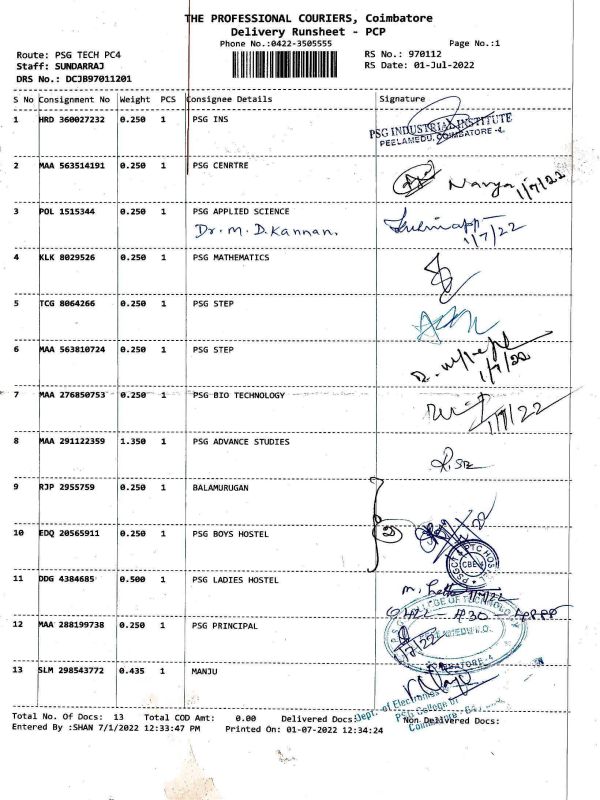 THE PROFESSIONAL COURIERS, Coimbatore
Delivery Runsheet - PCP
Phone No.:0422-3505555 Page No.:1
Route: PSG TECH PC4 RS No.: 970112
Staff: SUNDARRAJ RS Date: 01-Jul-2022
DRS No.: DCJB97011201
S No Consignment No Weight PCS Consignee Details Signature
1 HRD 360027232 0.250 1 PSG INS
PSG INDUSTRIAL INSTITUTE
PEELAMEDU, COIMBATORE -4.
2 MAA 563514191 0.250 1 PSG CENRTRE
Navya 1/7/22
3 POL 1515344 0.250 1 PSG APPLIED SCIENCE
Dr. M. D. Kannan. 1/7/22
4 KLK 8029526 0.250 1 PSG MATHEMATICS
5 TCG 8064266 0.250 1 PSG STEP
6 MAA 563810724 0.250 1 PSG STEP
1/7/22
7 MAA 276850753 0.250 1 PSG BIO TECHNOLOGY
1/7/22
8 MAA 291122359 1.350 1 PSG ADVANCE STUDIES
9 RJP 2955759 0.250 1 BALAMURUGAN
10 EDQ 20565911 0.250 1 PSG BOYS HOSTEL
2
CBE-4
11 DDG 4384685 0.500 1 PSG LADIES HOSTEL
12 MAA 288199738 0.250 1 PSG PRINCIPAL
COLLEGE OF TECHNOLOGY
1/7/22
COIMBATORE-4
13 SLM 298543772 0.435 1 MANJU
Total No. Of Docs: 13 Total COD Amt: 0.00 Delivered Docs: Non Delivered Docs:
Dept. of Electronics
PSG College of
Coimbatore
Entered By :SHAN 7/1/2022 12:33:47 PM Printed On: 01-07-2022 12:34:24